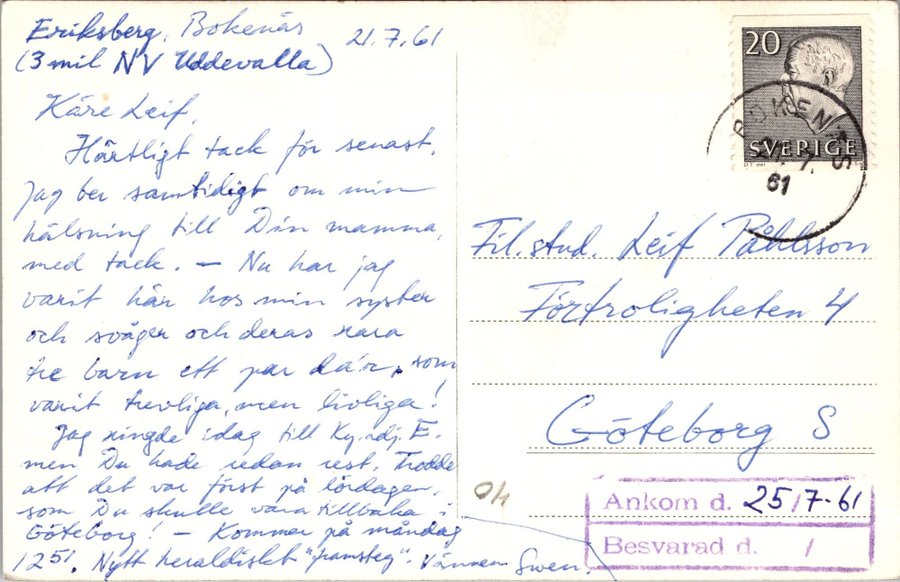 Eriksberg, Bokenäs 21.7.61
(3 mil NV Uddevalla)
Käre Leif,
Härtligt tack för senast.
Jag ber samtidigt om min
hälsning till Din mamma,
med tack. – Nu har jag
varit här hos min syster
och svåger och deras rara
tre barn ett par dar, som
varit trevliga, men livliga!
Jag ringde idag till Ky.rdj. E.
men Du hade redan rest. Trodde
att det var först på lördagen,
som Du skulle vara tillbaka i
Göteborg! – Kommer på måndag
1251. Nytt heraldiskt "framsteg". Vännen Swen.
20
SVERIGE
BOKENÄS
21.7.
61
Fil.stud. Leif Påhlsson
Förtroligheten 4
Göteborg S
04
Ankom d. 25/7-61
Besvarad d. /